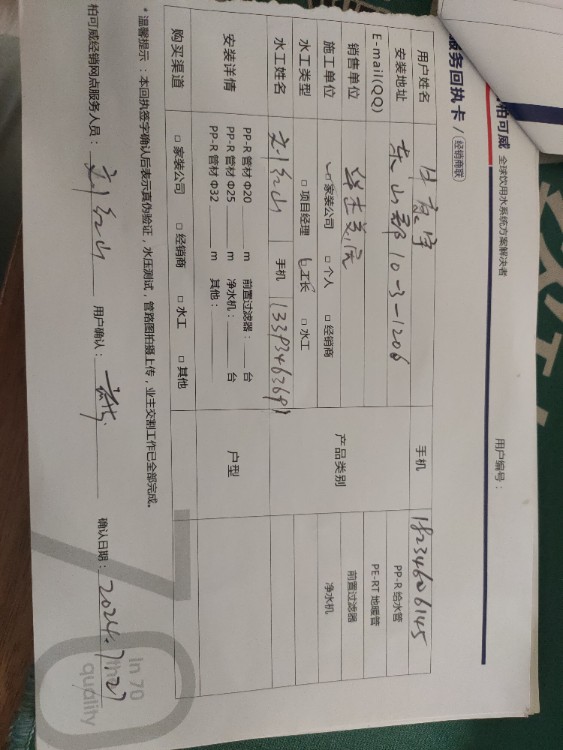 柏可威 全球饮用水系统方案解决者
服务回执卡 / 经销商联 用户编号：
用户姓名 手机 18234606145
安装地址 东山郡10-3-1206 PP-R 给水管
E-mail(QQ) PE-RT 地暖管
销售单位 华杰美居 产品类别 前置过滤器
施工单位 家装公司 □ 个人 □ 经销商 净水机
水工类型 □ 项目经理 工长 □ 水工
水工姓名 刘红山 手机 13393463691
安装详情 PP-R 管材 Φ20 m 前置过滤器： 台 户型
PP-R 管材 Φ25 m 净水机： 台
PP-R 管材 Φ32 m 其他：
购买渠道 □ 家装公司 □ 经销商 □ 水工 □ 其他
* 温馨提示：本回执签字确认后表示真伪验证，水压测试，管路图拍摄上传，业主交割工作已全部完成。
柏可威经销网点服务人员： 刘红山 用户确认： 确认日期： 2024.7.27
In 70
quality